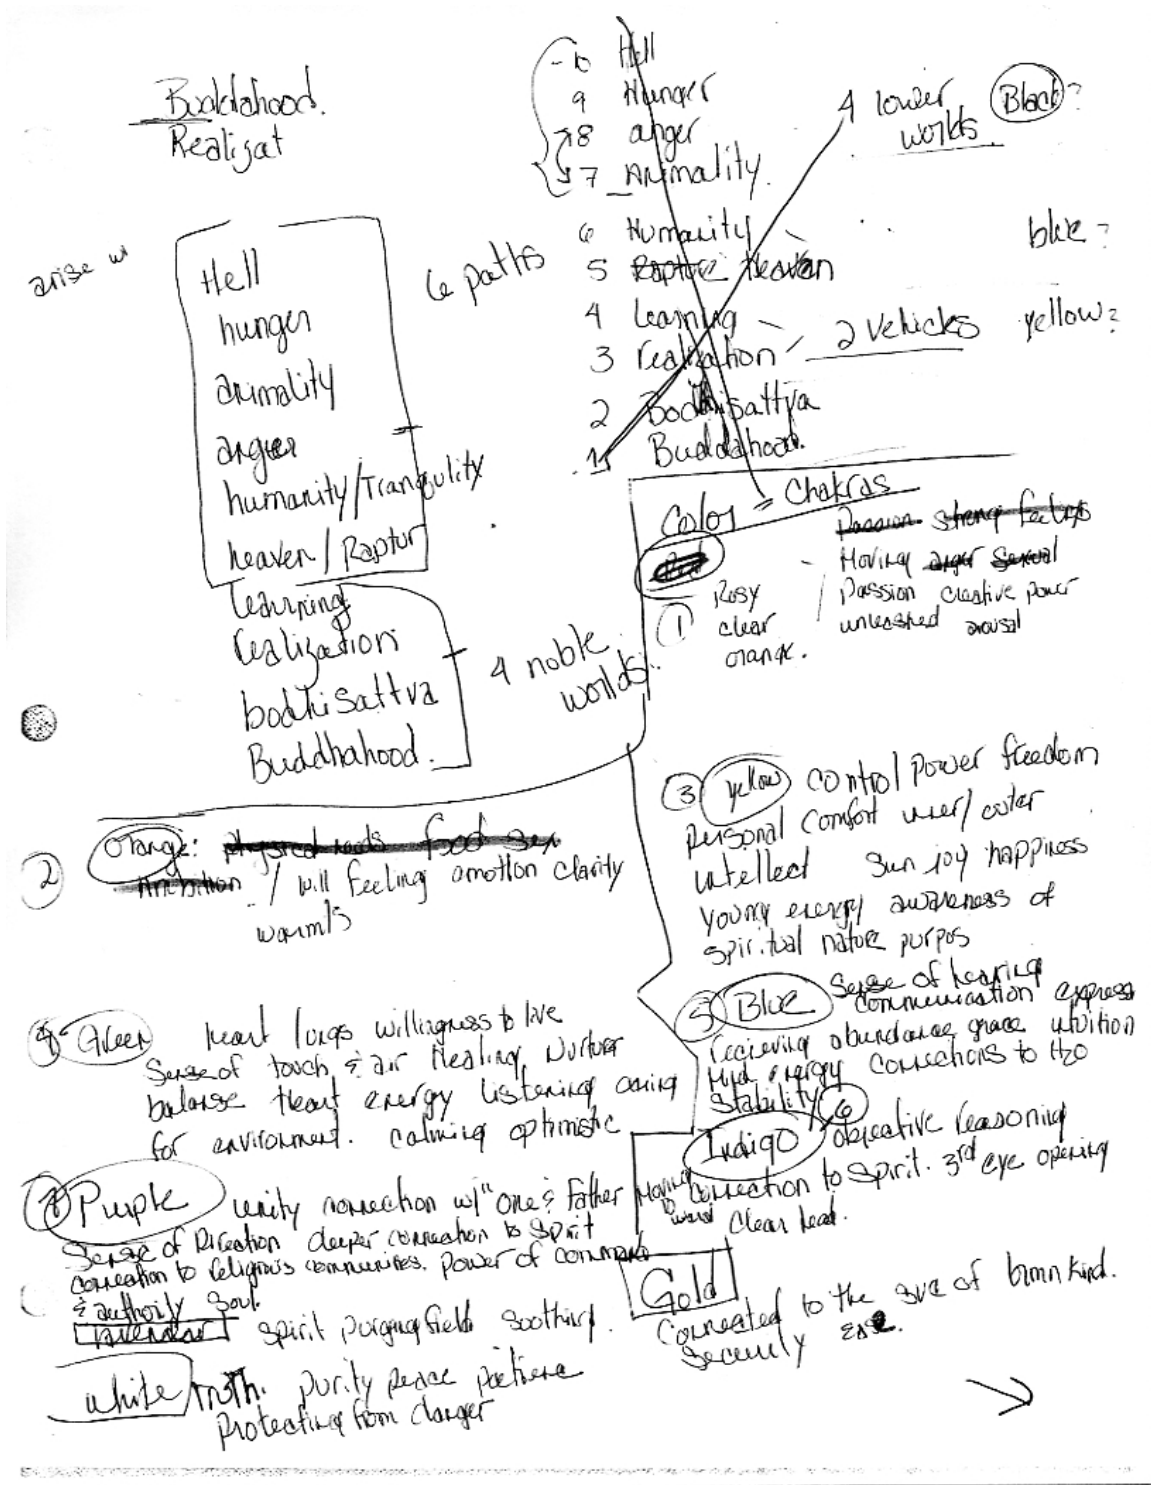 Buddahood.
Realizat
10 Hell
9 Hunger
8 anger
7 Animality.
4 lower worlds Black?
6 Humanity
blue?
5 Rapture Heaven
4 Learning
3 realization
2 Vehicles
yellow?
2 Bodhisattva
1 Buddahood.
arise w/
Hell
hunger
animality
anger
humanity/Tranqulity
heaven / Raptur
6 paths
learning
realization
bodhisattva
Buddhahood.
4 noble
worlds.
Color = Chakras
Red
Passion strong feelings
Moving anger sexual
Passion creative power
unleashed arousal
1 Rosy
clear
orange.
2 Orange: physical needs food sex
Ambition / will feeling amotion clarity
warmts
3 yellow control power freedom
Personal Comfort inner/outer
intellect Sun joy happiness
young energy awareness of
spiritual nature purpos
4 Green heart lungs willingness to love
Sense of touch & air Healing Nurtur
balanse Heart energy listening caring
for environment. calming optimistic
5 Blue Sense of hearing
communication express
recieving abundance grace intuition
Mind energy Connections to H2O
Stability
6 Indigo objective reasoning
Connection to Spirit. 3rd eye opening
Moving
clear head.
7 Purple unity connection w/ "one & Father
Sense of Direction deeper connection to Spirit
connection to religious communities. Power of command
& authority Soul.
lavendar spirit purging field soothing.
Gold
Connected to the
of
Kind.
Securely
white Truth. purity peace
Protecting from danger